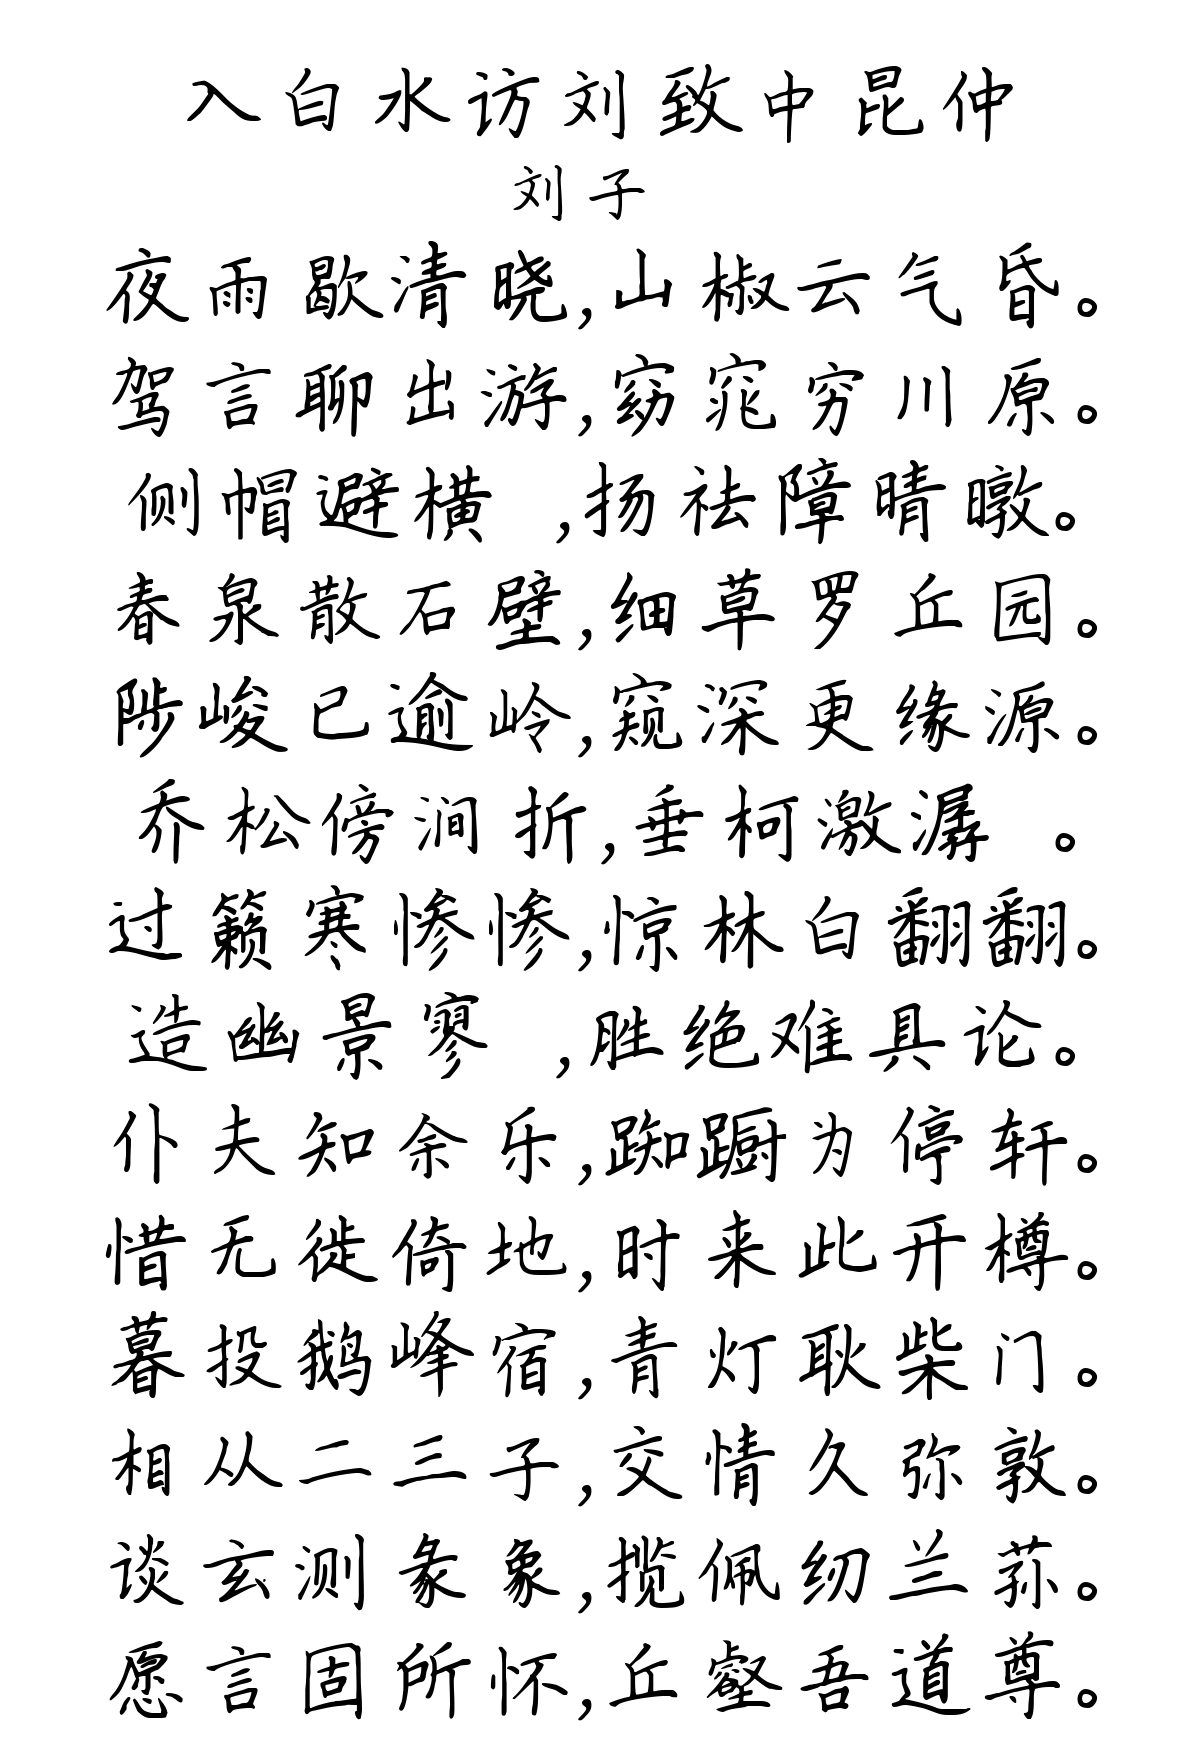 入白水访刘致中昆仲
刘子
夜雨歇清晓,山椒云气昏。
驾言聊出游,窈窕穷川原。
侧帽避横 ,扬祛障晴暾。
春泉散石壁,细草罗丘园。
陟峻已逾岭,窥深更缘源。
乔松傍涧折,垂柯激潺 。
过籁寒惨惨,惊林白翻翻。
造幽景寥 ,胜绝难具论。
仆夫知余乐,踟蹰为停轩。
惜无徙倚地,时来此开樽。
暮投鹅峰宿,青灯耿柴门。
相从二三子,交情久弥敦。
谈玄测彖象,揽佩纫兰荪。
愿言固所怀,丘壑吾道尊。